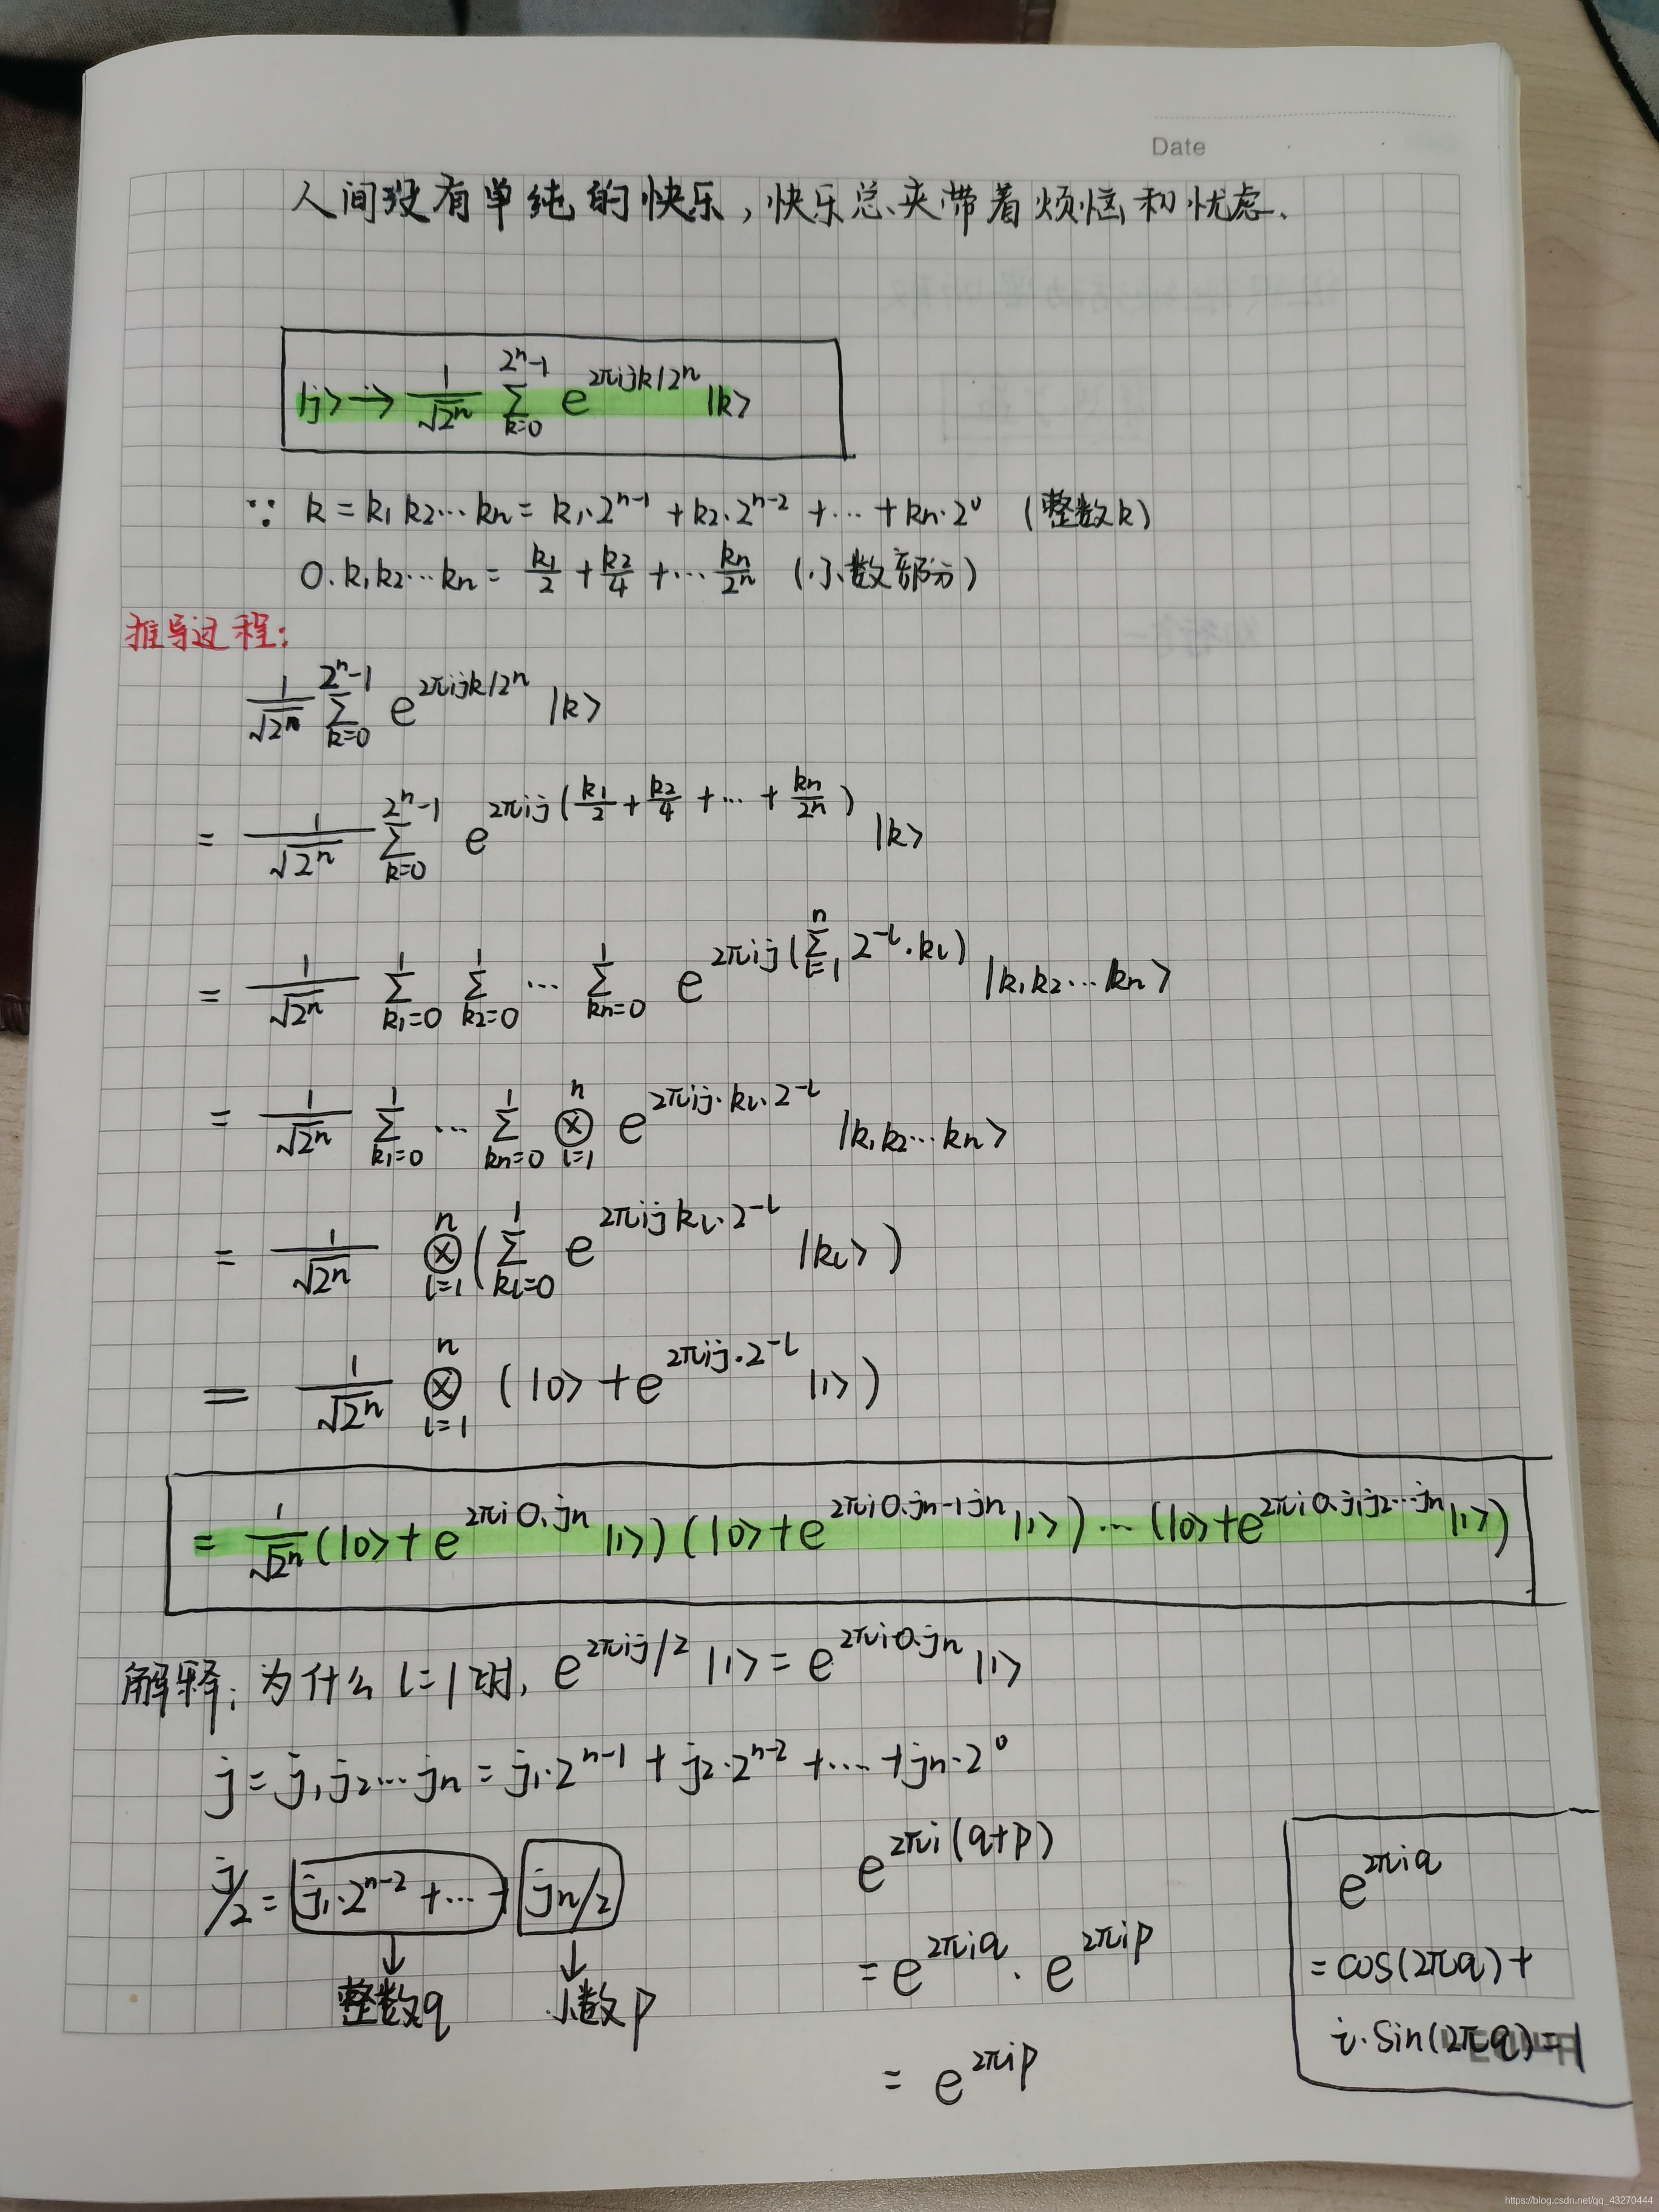 Date
人间没有单纯的快乐,快乐总夹带着烦恼和忧虑.
|j> → 1/√2ⁿ ∑_{k=0}^{2ⁿ-1} e^{2πijk/2ⁿ} |k>
∵ k = k₁k₂…kₙ = k₁·2^{n-1} + k₂·2^{n-2} + … + kₙ·2⁰ (整数k)
0.k₁k₂…kₙ = k₁/2 + k₂/4 + … kₙ/2ⁿ (小数部分)
推导过程:
1/√2ⁿ ∑_{k=0}^{2ⁿ-1} e^{2πijk/2ⁿ} |k>
= 1/√2ⁿ ∑_{k=0}^{2ⁿ-1} e^{2πij(k₁/2 + k₂/4 + … + kₙ/2ⁿ)} |k>
= 1/√2ⁿ ∑_{k₁=0}^{1} ∑_{k₂=0}^{1} … ∑_{kₙ=0}^{1} e^{2πij(∑_{l=1}^{n} 2^{-l}·k_l)} |k₁k₂…kₙ>
= 1/√2ⁿ ∑_{k₁=0}^{1} … ∑_{kₙ=0}^{1} ⊗_{l=1}^{n} e^{2πij·k_l·2^{-l}} |k₁k₂…kₙ>
= 1/√2ⁿ ⊗_{l=1}^{n} (∑_{k_l=0}^{1} e^{2πijk_l·2^{-l}} |k_l>)
= 1/√2ⁿ ⊗_{l=1}^{n} (|0> + e^{2πij·2^{-l}} |1>)
= 1/√2ⁿ (|0> + e^{2πi0.jₙ} |1>)(|0> + e^{2πi0.jₙ₋₁jₙ} |1>) … (|0> + e^{2πi0.j₁j₂…jₙ} |1>)
解释:为什么 l=1时, e^{2πij/2} |1> = e^{2πi0.jₙ} |1>
j = j₁j₂…jₙ = j₁·2^{n-1} + j₂·2^{n-2} + … + jₙ·2⁰
j/2 = j₁·2^{n-2} + … + jₙ/2
↓ ↓
整数q 小数p
e^{2πi(q+p)}
= e^{2πiq} · e^{2πip}
= e^{2πip}
e^{2πiq}
= cos(2πq) +
i·sin(2πq) = 1
https://blog.csdn.net/qq_43270444